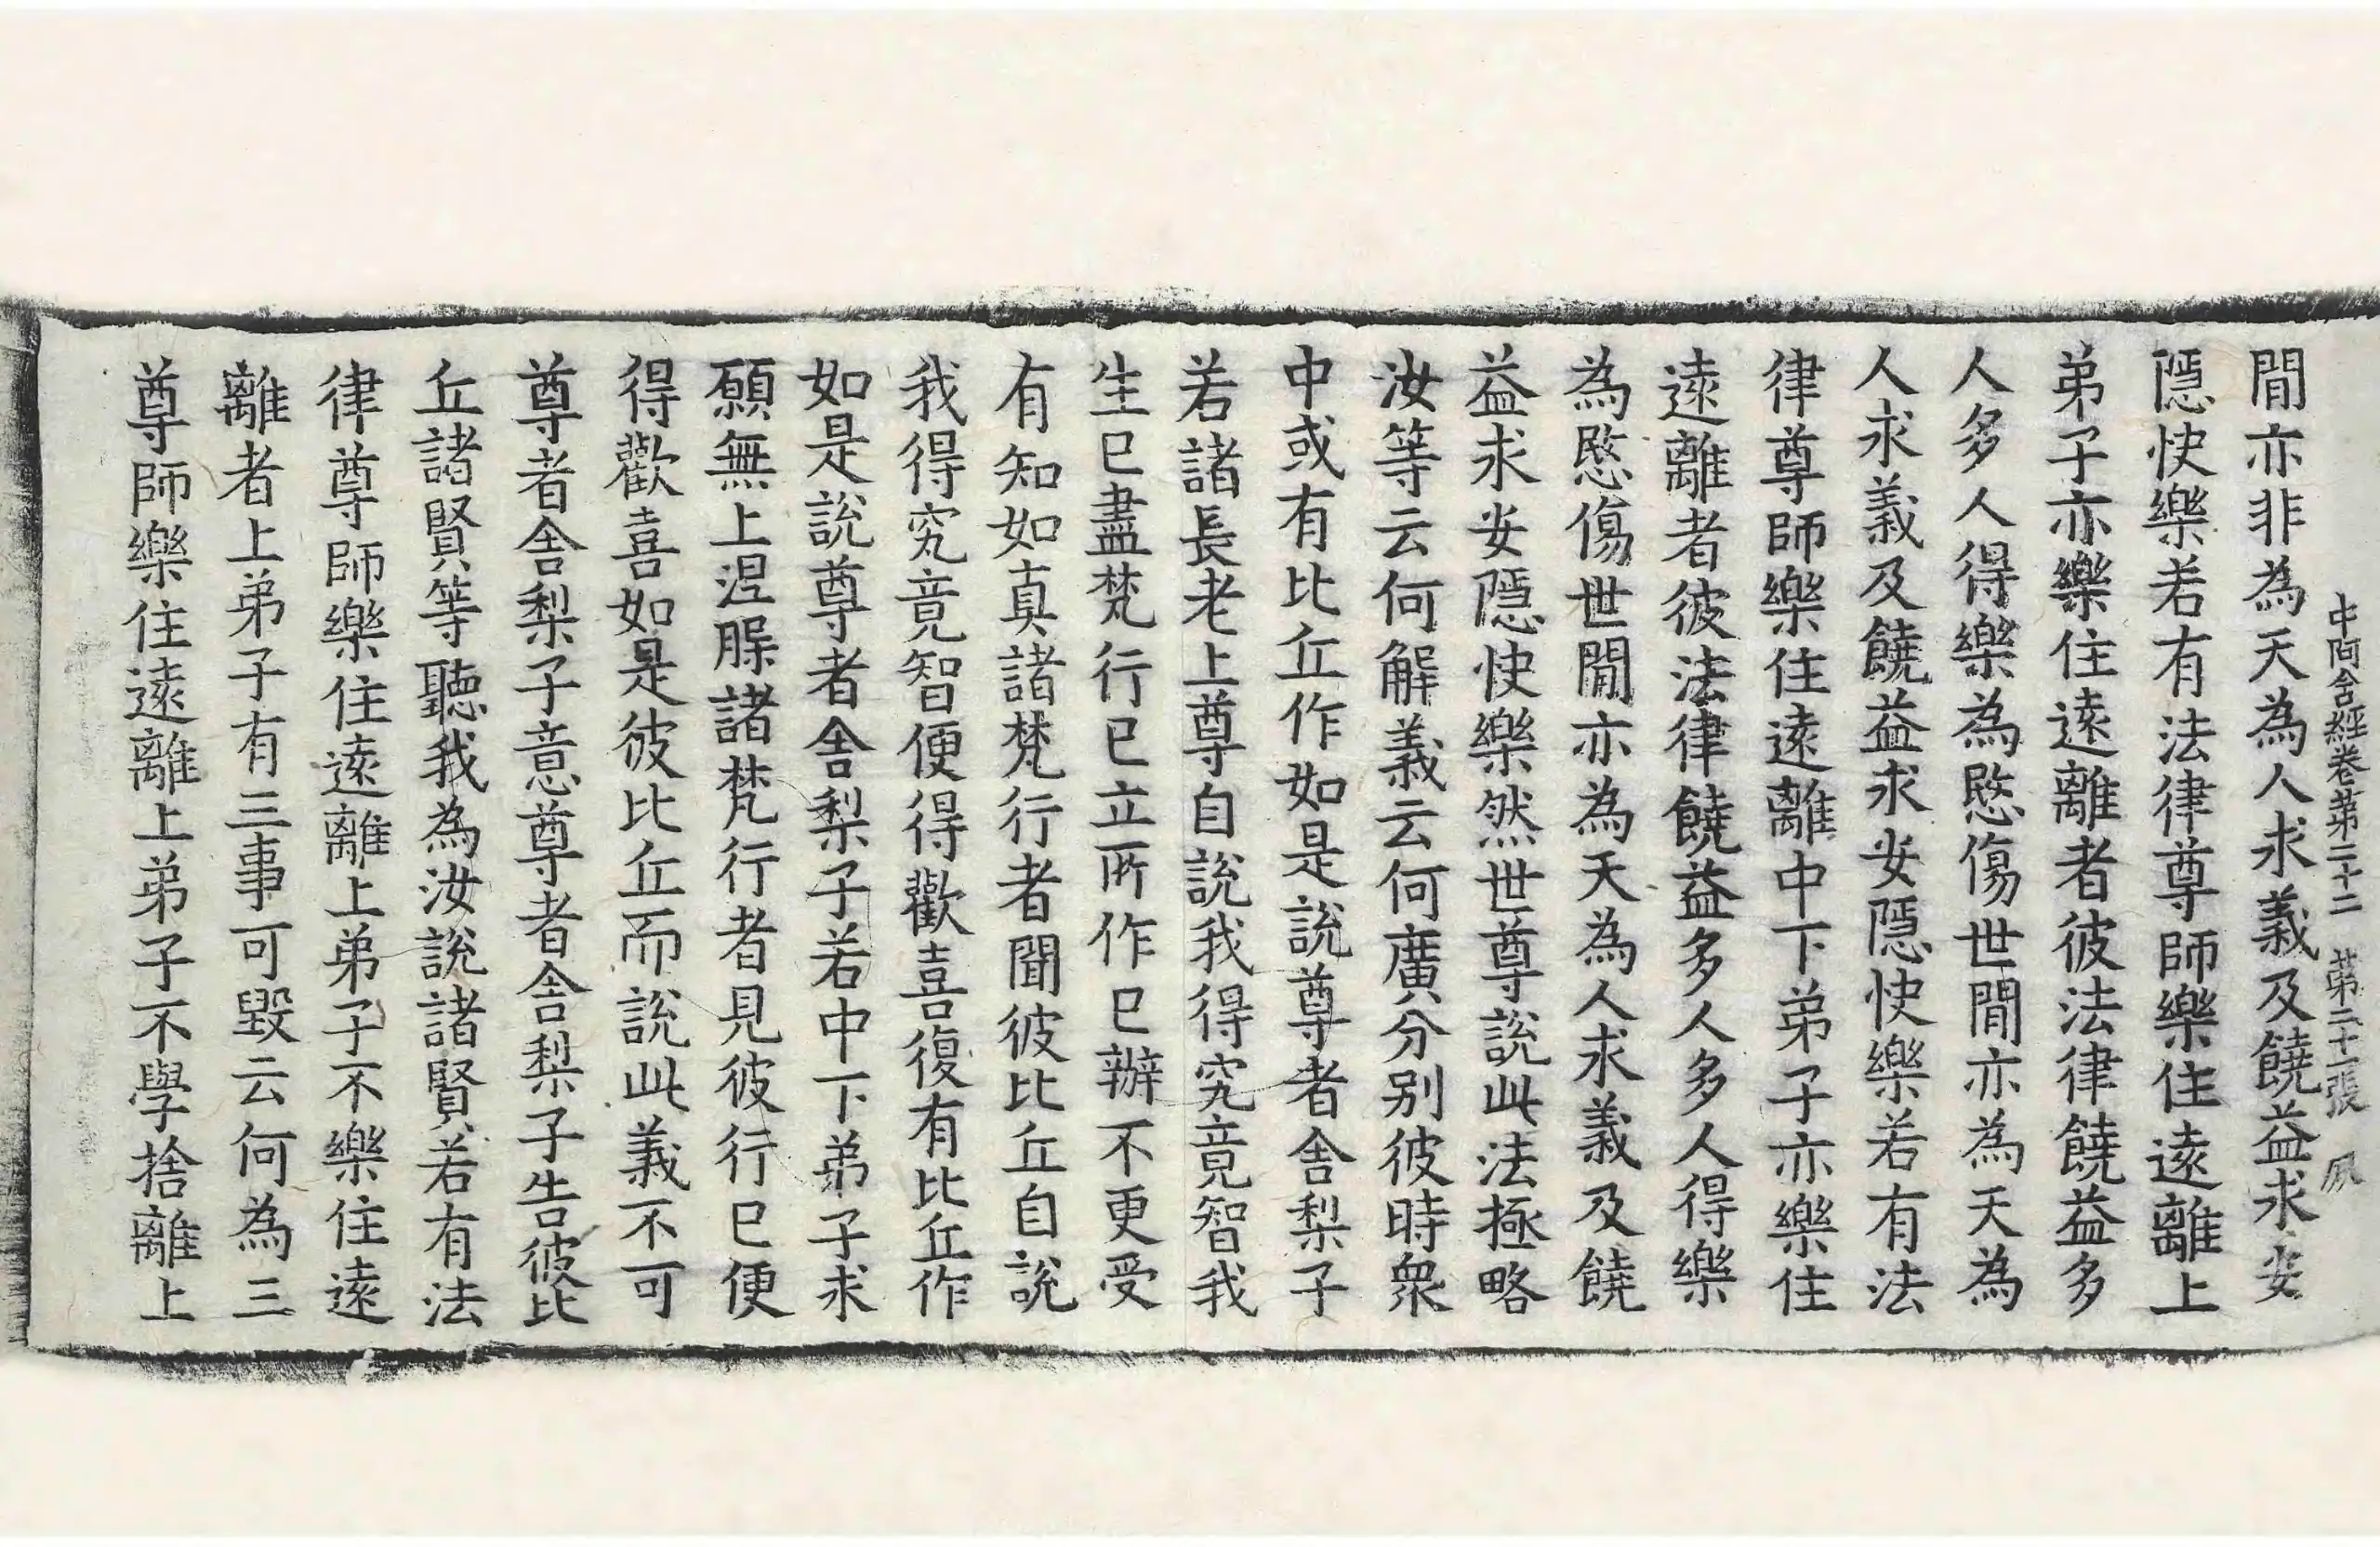 中阿含經卷第二十二　第二十一張　夙
間亦非為天為人求義及饒益求安
隱快樂若有法律尊師樂住遠離上
弟子亦樂住遠離者彼法律饒益多
人多人得樂為愍傷世間亦為天為
人求義及饒益求安隱快樂若有法
律尊師樂住遠離中下弟子亦樂住
遠離者彼法律饒益多人多人得樂
為愍傷世間亦為天為人求義及饒
益求安隱快樂然世尊說此法極略
汝等云何解義云何廣分别彼時衆
中或有比丘作如是說尊者舍梨子
若諸長老上尊自說我得究竟智我
生已盡梵行已立所作已辦不更受
有知如真諸梵行者聞彼比丘自說
我得究竟智便得歡喜復有比丘作
如是說尊者舍梨子若中下弟子求
願無上涅槃諸梵行者見彼行已便
得歡喜如是彼比丘而說此義不可
尊者舍梨子意尊者舍梨子告彼比
丘諸賢等聽我為汝說諸賢若有法
律尊師樂住遠離上弟子不樂住遠
離者上弟子有三事可毀云何為三
尊師樂住遠離上弟子不學捨離上